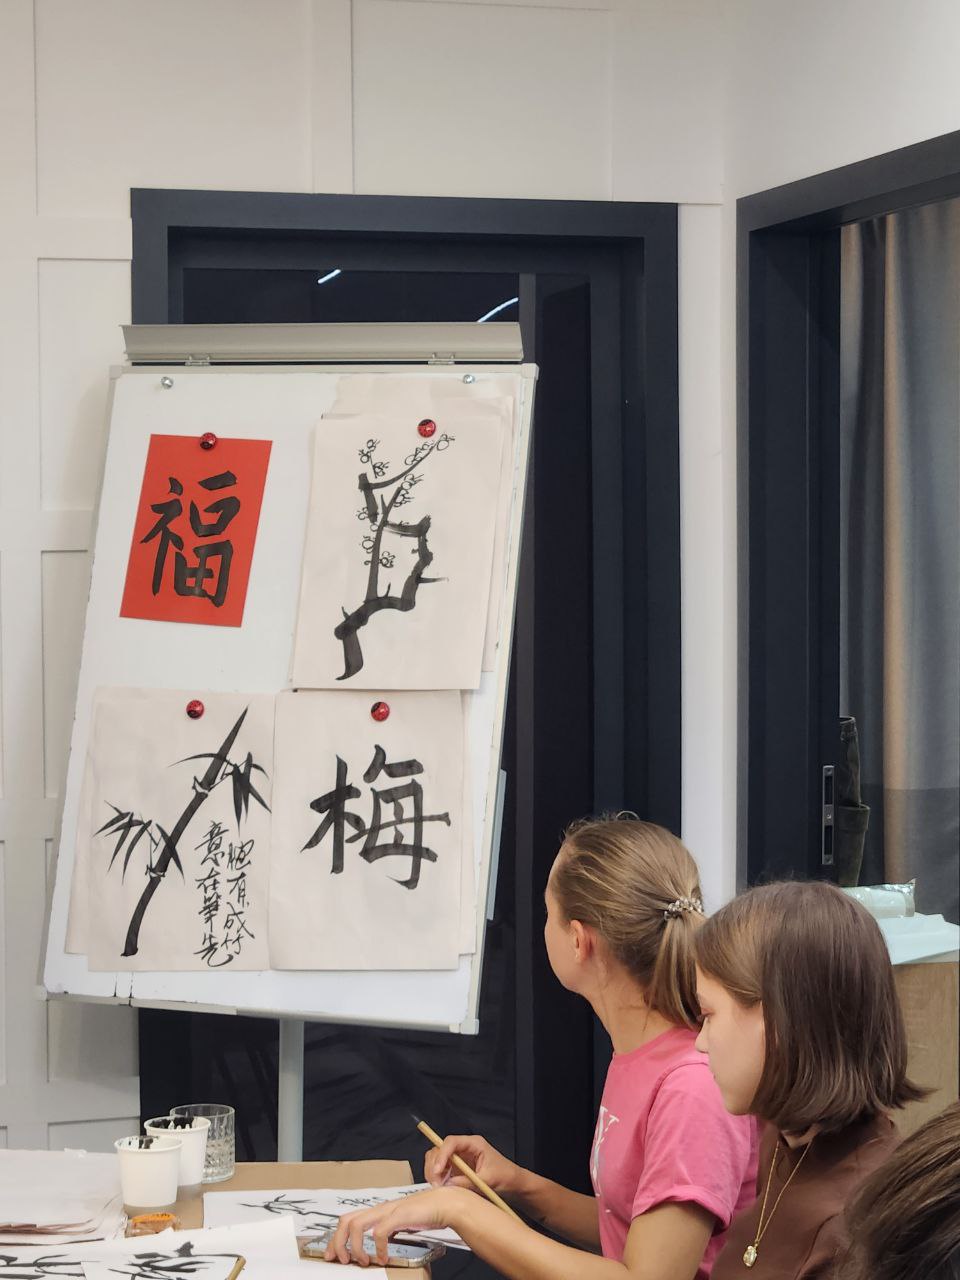 福
胸有成竹
意在筆先
梅